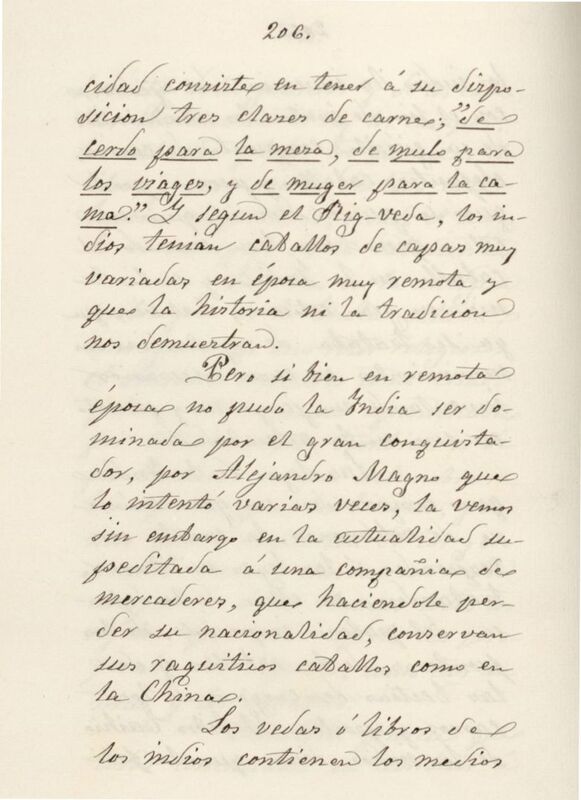 206.
cidad consiste en tener á su dispo-
sicion tres clases de carne; "de
cerdo para la mesa, de mulo para
los viages, y de muger para la ca-
ma." Y segun el Rig-veda, los in-
dios tenian caballos de capas muy
variadas en época muy remota y
que la historia ni la tradicion
nos demuestran.
Pero si bien en remota
época no pudo la India ser do-
minada por el gran conquista-
dor, por Alejandro Magno que
lo intentó varias veces, la vemos
sin embargo en la actualidad su-
peditada á una compañia de
mercaderes, que haciendole per-
der su nacionalidad, conservan
sus raquiticos caballos como en
la China.
Los vedas ó libros de
los indios contienen los medios